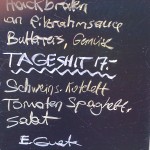 Hackbraten
an Pf.rahmsauce
Butterers, Gemüse
TAGESHIT 17.-
Schweins-Kotelett
Tomaten Spaghetti,
Salat
E Guete